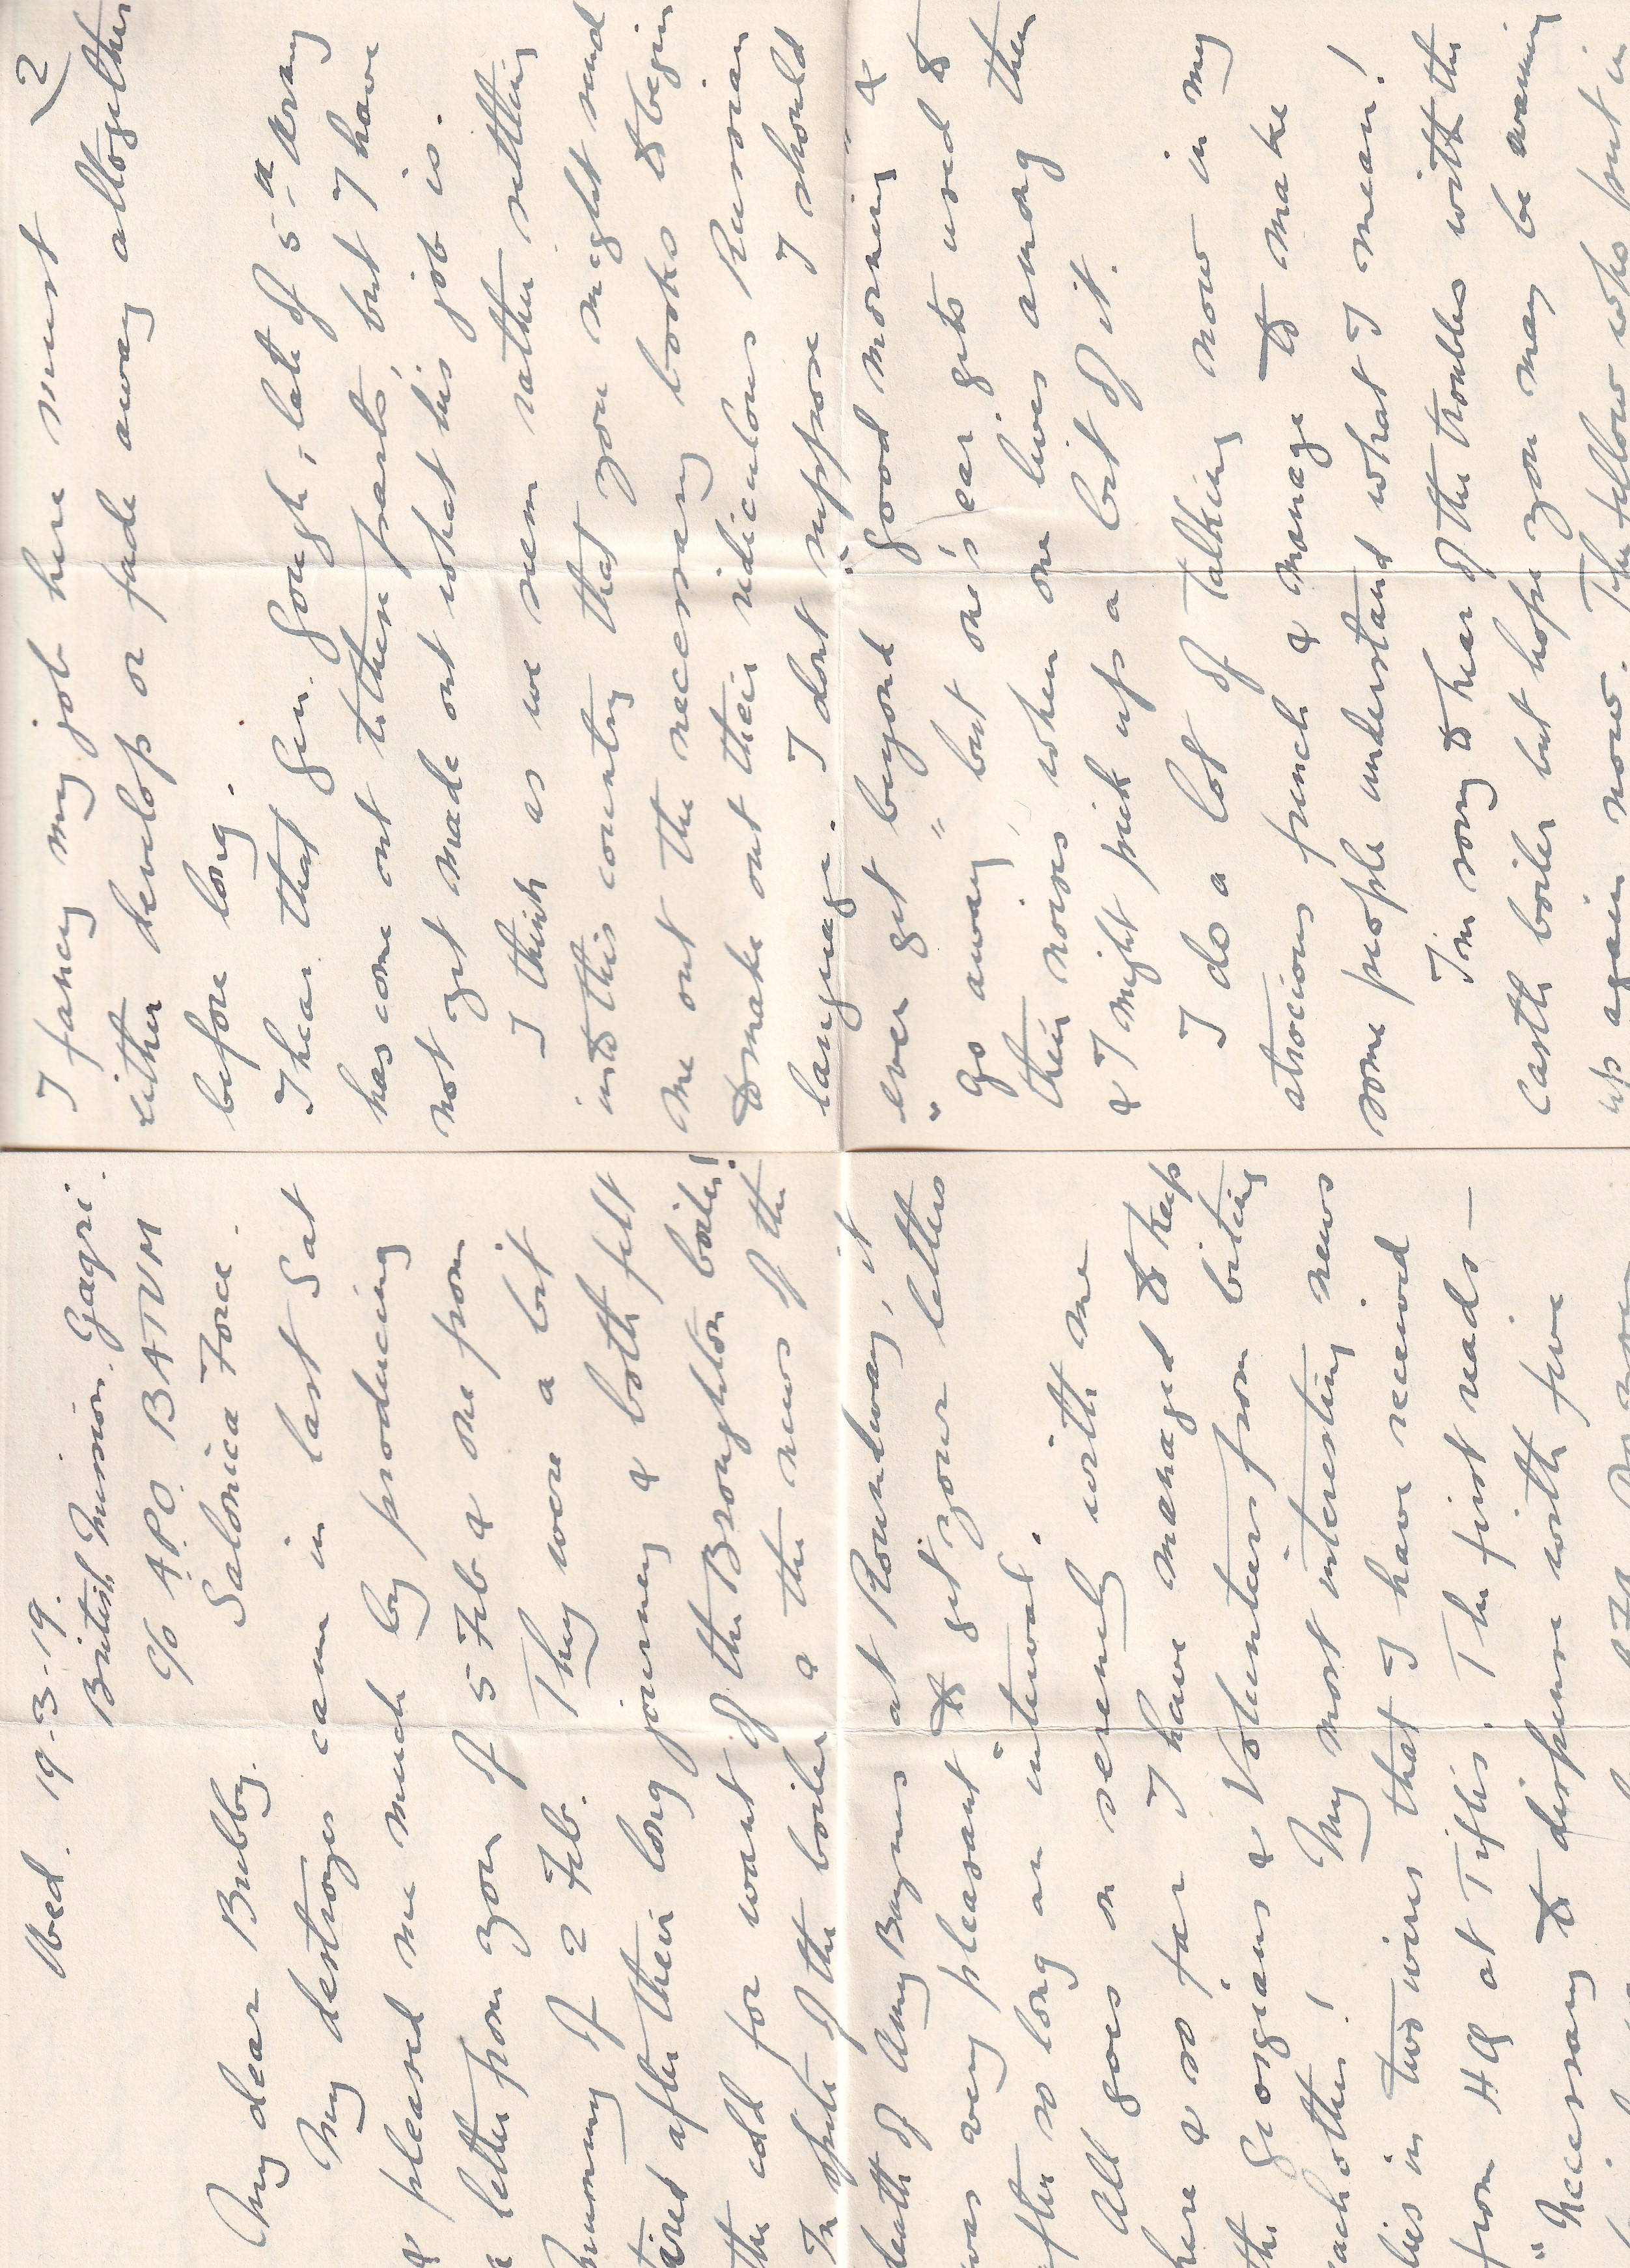 Wed. 19-3-19.
British Mission. Gagri.
c/o A.P.O. BATUM
Salonica Force.
My dear Bubby.
My destroyer came in last Sat
& pleased me much by producing
a letter from you of 5 Feb & one from
Mummy of 2 Feb. They were a bit
tired after their long journey & both felt
the cold for want of the Broughton boiler!
In spite of the boiler & the news of the
death of Amy Burgess at Roundway, it
was very pleasant to get your letters
after so long an interval.
All goes on serenely with me
here & so far I have managed to keep
the Georgians & Volunteers from biting
each other! My most interesting news
lies in two wires that I have received
from HQ at Tiflis. The first reads —
"Necessary to dispense with five
(2
I fancy my job here must
either develop or fade away altogether
before long.
I hear that Gen. Gough, late of 5th Army
has come out to these parts, but I have
not yet made out what his job is.
I think as we seem rather settling
into this country that you might send
me out the necessary books to begin
to make out their ridiculous Russian
language. I dont suppose I should
ever get beyond "good morning" &
"go away" but one's ear gets used to
their noises when one lives among them
& I might pick up a bit of it.
I do a lot of talking now in my
atrocious french & manage to make
some people understand what I mean!
I'm sorry to hear of the troubles with the
Castle boiler but hope you may be warming
up again now. The fellow who put in